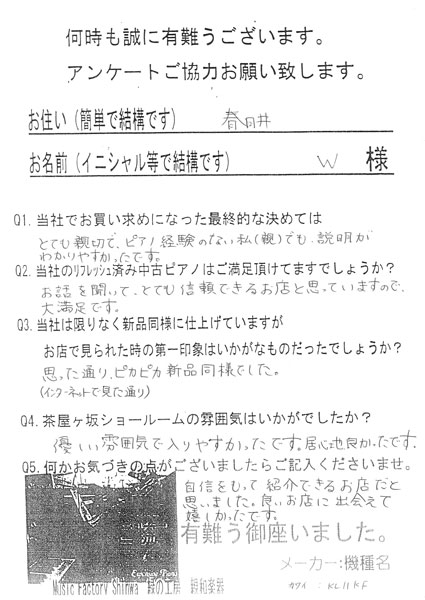 何時も誠に有難うございます。
アンケートご協力お願い致します。
お住い（簡単で結構です） 春日井
お名前（イニシャル等で結構です） W 様
Q1. 当社でお買い求めになった最終的な決めては
とても親切で、ピアノ経験のない私(親)でも、説明が
わかりやすかったです。
Q2. 当社のリフレッシュ済み中古ピアノはご満足頂けてますでしょうか？
お話を聞いて、とても信頼できるお店と思っていますので、
大満足です。
Q3. 当社は限りなく新品同様に仕上げていますが
お店で見られた時の第一印象はいかがなものだったでしょうか？
思った通り、ピカピカ新品同様でした。
(インターネットで見た通り)
Q4. 茶屋ヶ坂ショールームの雰囲気はいかがでしたか？
優しい雰囲気で入りやすかったです。居心地良かったです.
Q5. 何かお気づきの点がございましたらご記入くださいませ。
自信をもって紹介できるお店だと
思いました。良いお店に出会えて
嬉しかったです。
有難う御座いました。
メーカー：機種名
Music Factory Shinwa 親和楽器
カワイ : KL11KF